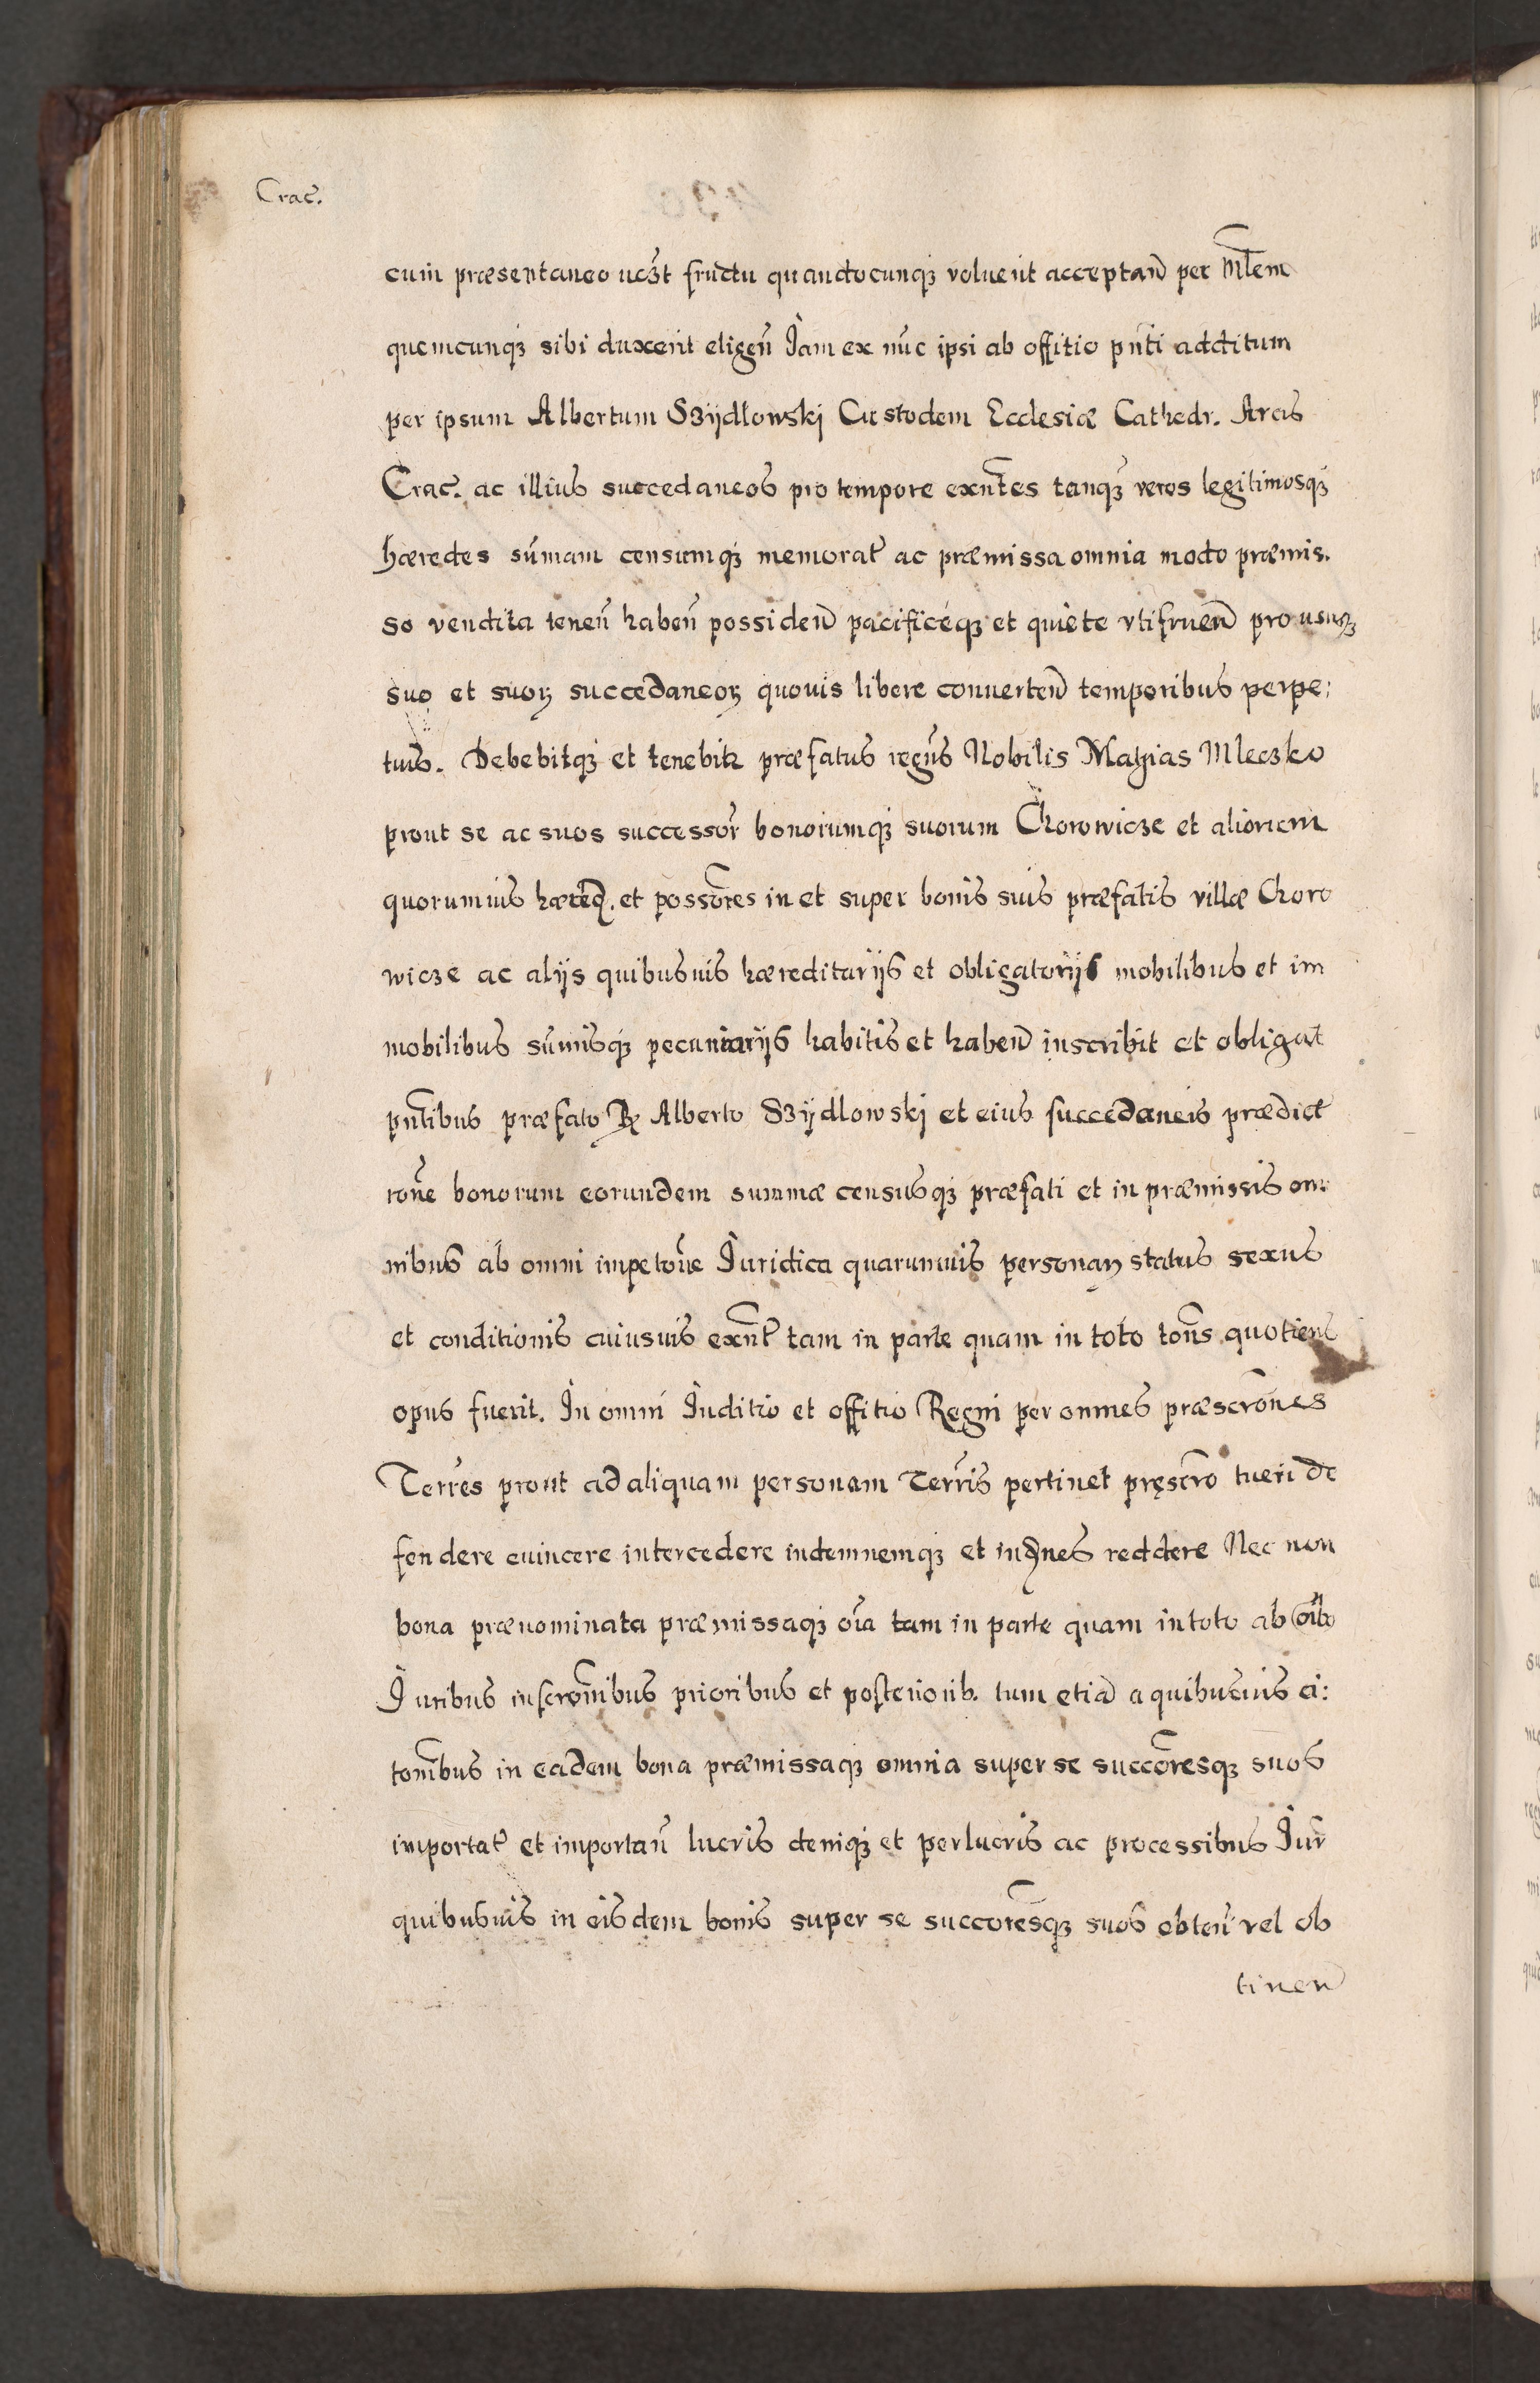 Crac̃.
cum præsentaneo ucz̃t fructu quandocunqꝫ voluerit acceptan̄ per M̃lem
quemcunqꝫ sibi duxerit eligen̄ Jam ex nūc ipsi ab offitio pñti additum
per ipsum Albertum Szÿdlowskj Custodem Ecclesiæ Cathedr. Arcis
Crac̃. ac illius succedaneos pro tempore exñtes tanqꝫ veros legitimosqꝫ
hæredes sūmam censumqꝫ memorat̃ ac præmissa omnia modo præmis.
so vendita tenen̄ haben̄ possiden̄ pacificéqꝫ et quiète vtifruen̄ pro ususqꝫ
suo et suoꝝ succedaneoꝝ quouis libere conuerten̄ temporibus perpe:
tuis. Debebitqꝫ et tenebitꝛ præfatus regñs Nobilis Mathias Mleczko
prout se ac suos successor̃ bonorumqꝫ suorum Chorowicze et aliorum
quorumuis hæred̃. et possõres in et super bonis suis præfatis villæ Choro
wicze ac alijs quibusuis hæreditarijs et obligatorijs mobilibus et im
mobilibus sūmisqꝫ pecuniarijs habitis et haben̄ inscribit et obligat
pñtibus præfato R̃ Alberto Szÿdlowskj et eius succedaneis prædict̃
rõne bonorum eorundem summæ censusqꝫ præfati et in præmissis om:
nibus ab omni impetõne Juridica quarumuis personaꝝ status sexus
et conditionis cuiusuis exñt̃ tam in parte quam in toto tõns quotiens
opus fuerit. In omni Juditio et offitio Regni per omnes præscrõnes
Terr̃es prout ad aliquam personam Terr̃is pertinet pręscrõ tueri de
fendere euincere intercedere indemnemqꝫ et indẽnes reddere Nec non
bona prænominata præmissaqꝫ oĩa tam in parte quam in toto ab oĩbus
Juribus inscrõnibus prioribus et posteriorib. tum etiā a quibusuis ci:
tonibus in eadem bona præmissaqꝫ omnia super se succõresqꝫ suos
importat̃ et importan̄ lucris deniqꝫ et perlucris ac processibus Jur̃
quibusuis in eisdem bonis super se succõresqꝫ suos obten̄ vel ob
tinen̄